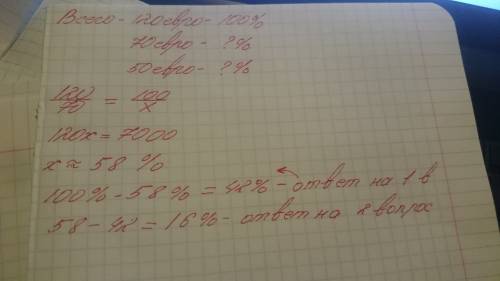 Всего - 120 евро - 100%
70 евро - ?%
50 евро - ?%
120/70 = 100/x
120x = 7000
x ≈ 58 %
100% - 58% = 42% - ответ на 1 в
58 - 42 = 16% - ответ на 2 вопрос